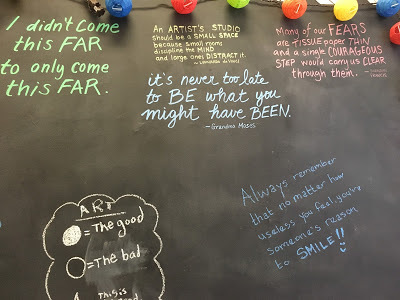 I didn't come
this FAR
to only come
this FAR.
An ARTIST'S STUDIO
should be a SMALL SPACE
because small rooms
discipline the MIND
and large ones DISTRACT it.
- Leonardo da Vinci
it's never too late
to BE what you
might have BEEN.
- Grandma Moses
Many of our FEARS
are TISSUE PAPER THIN
and a single COURAGEOUS
STEP would carry us CLEAR
through them.
ART
= The good
= The bad
This is
Always remember
that no matter how
useless you feel, you're
someone's reason
to SMILE!!